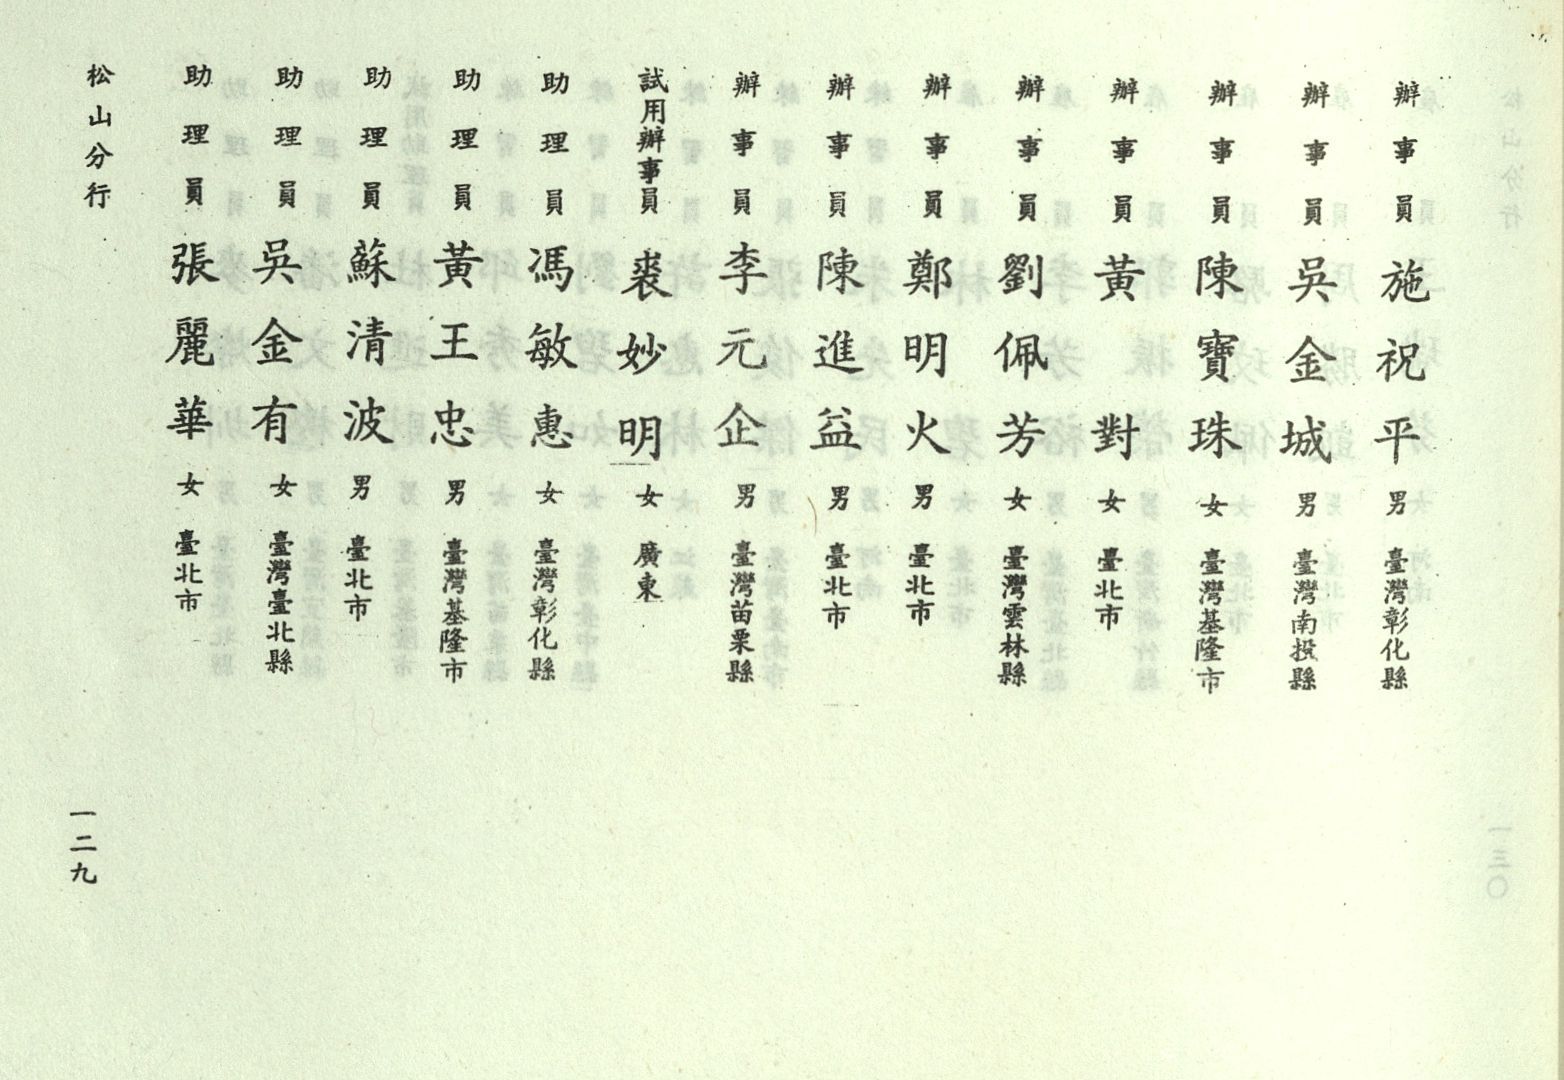 辦事員 施祝平 男 臺灣彰化縣
辦事員 吳金城 男 臺灣南投縣
辦事員 陳寶珠 女 臺灣基隆市
辦事員 黃對 女 臺北市
辦事員 劉佩芳 女 臺灣雲林縣
辦事員 鄭明火 男 臺北市
辦事員 陳進益 男 臺北市
辦事員 李元企 男 臺灣苗栗縣
試用辦事員 裘妙明 女 廣東
助理員 馮敏惠 女 臺灣彰化縣
助理員 黃王忠 男 臺灣基隆市
助理員 蘇清波 男 臺北市
助理員 吳金有 女 臺灣臺北縣
助理員 張麗華 女 臺北市
松山分行
一二九